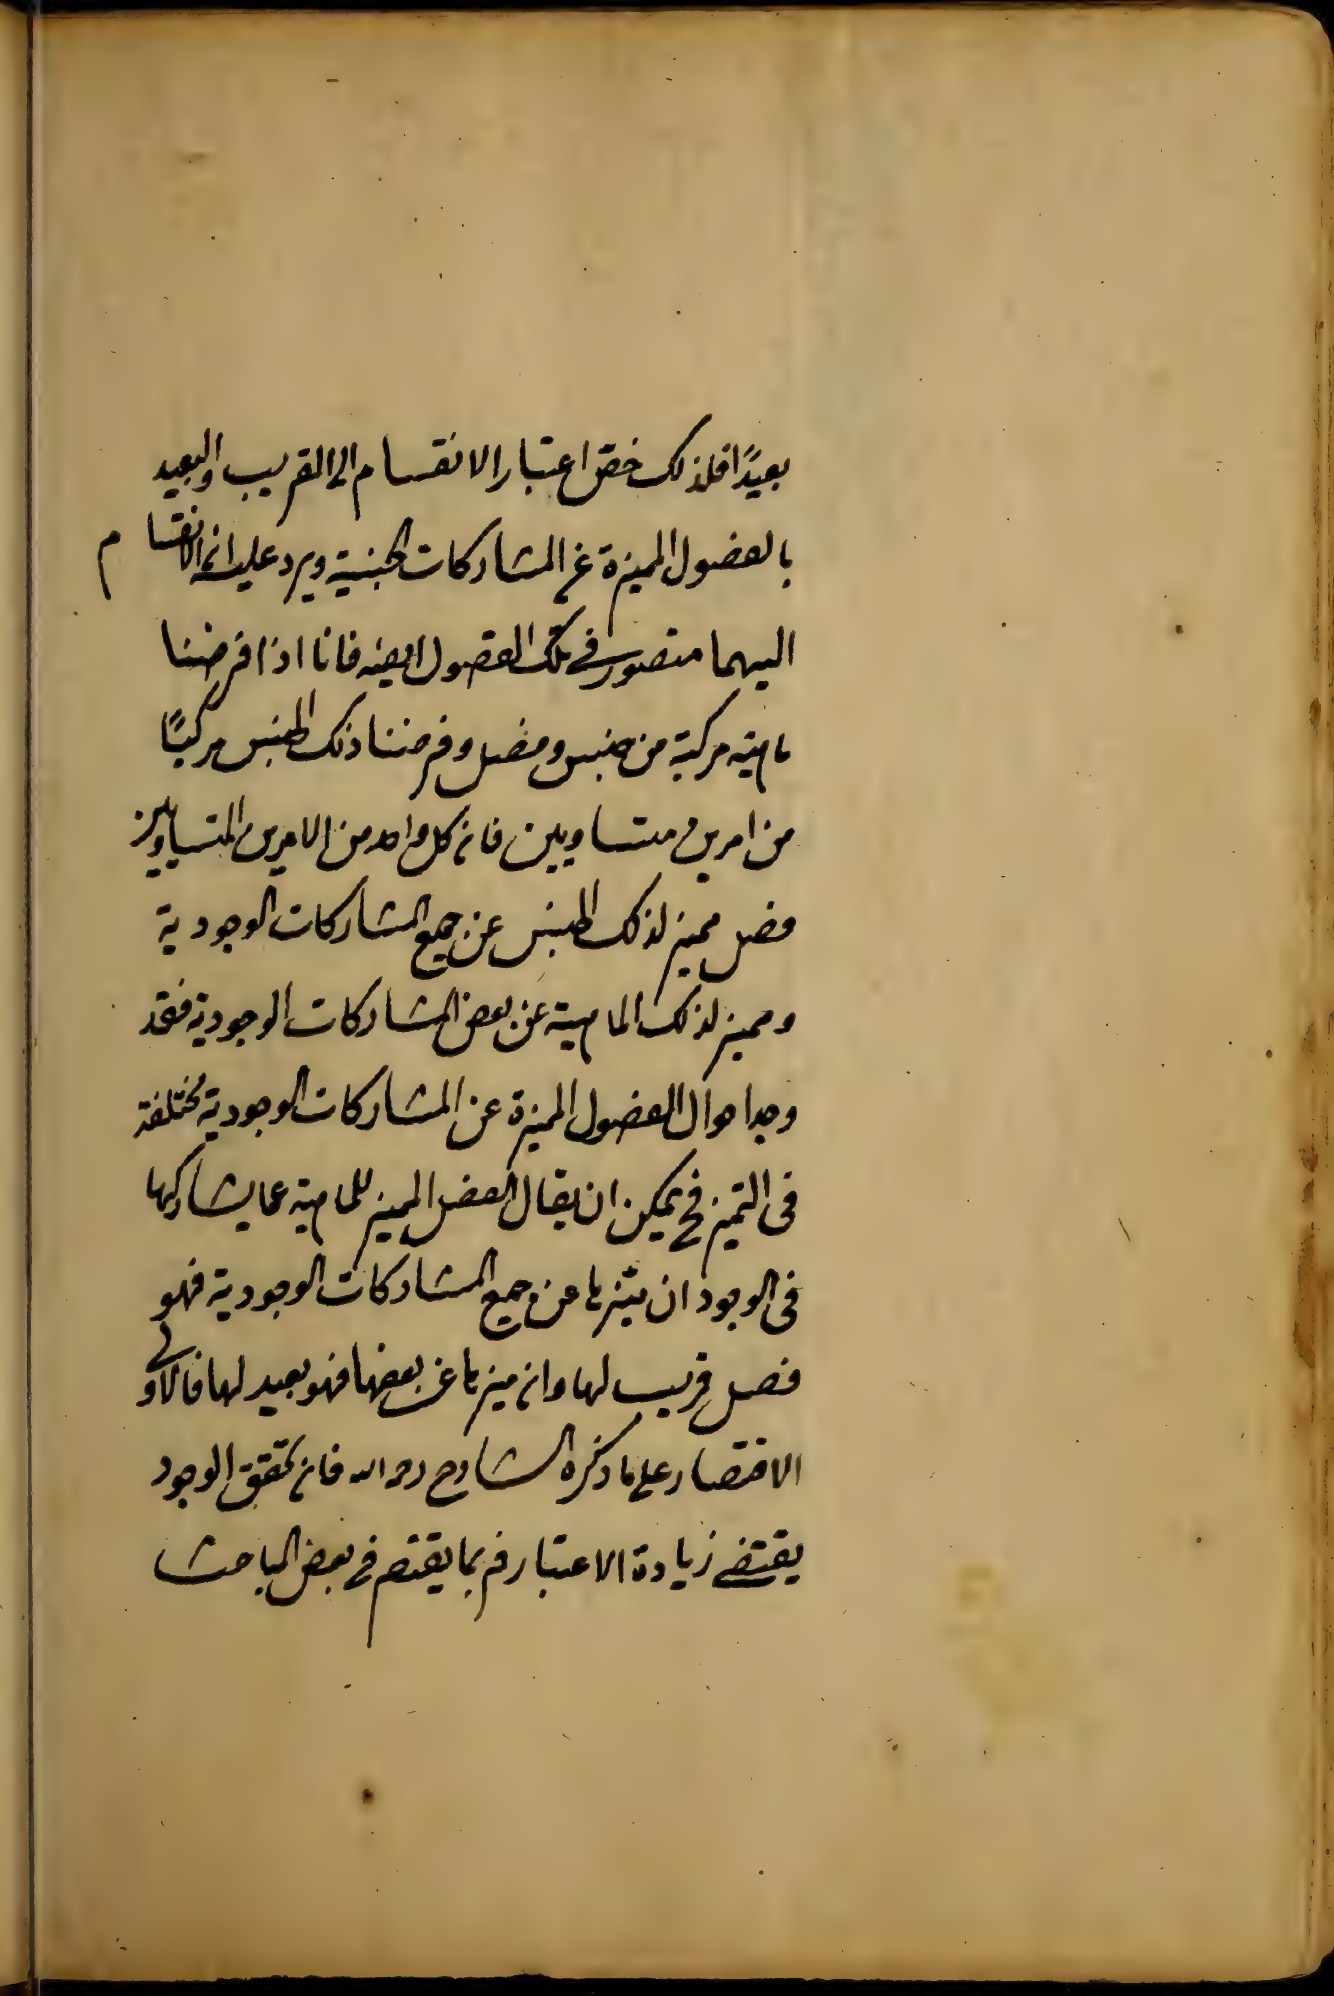 بعيدًا فلذلك خص اعتبار الانقسام الى القريب والبعيد
بالفصول المميزة عن المشاركات الجنسية ويرد عليه ان الانقسام
اليهما متصور فى تلك الفصول ايضه فانا اذا فرضنا
ماهية مركبة من جنس وفصل وفرضنا ذلك الجنس مركبًا
من امرين متساويين فان كل واحد من الامرين المتساويين
فصل مميز لذلك الجنس عن جميع المشاركات الوجودية
ومميز لذلك الماهية عن بعض المشاركات الوجودية فقد
وجد احوال الفصول المميزة عن المشاركات الوجودية مختلفة
فى التميز فح يمكن ان يقال الفصل المميز للماهية عما يشاركها
فى الوجود ان ميزها عن جميع المشاركات الوجودية فهو
فصل قريب لها وان ميزها عن بعضها فهو بعيد لها فالاولى
الاقتصار على ما ذكره الشارح رحمه الله فان تحقق الوجود
يقتضى زيادة الاعتبار فربما يقتصر فى بعض المباحث